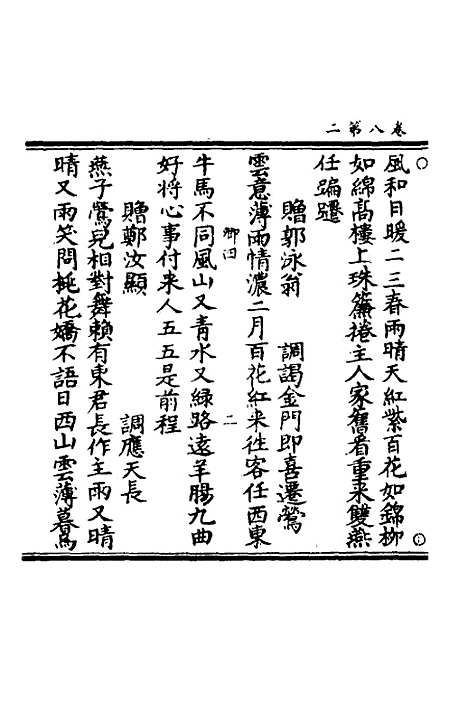 卷八第二
風和日暖二三春雨晴天紅紫百花如錦柳
如綿髙樓上珠簾捲主人家舊看重来雙燕
任蹁躚
贈郭泳翁　調謁金門即喜遷鶯
雲意薄雨情濃二月百花紅来往客任西東
卿田　二
牛馬不同風山又青水又緑路逺羊腸九曲
好将心事付来人五五是前程
贈鄭汝顯　調應天長
燕子鶯兒相對舞賴有東君長作主雨又晴
晴又雨笑問桃花嬌不語日西山雲薄暮鳥